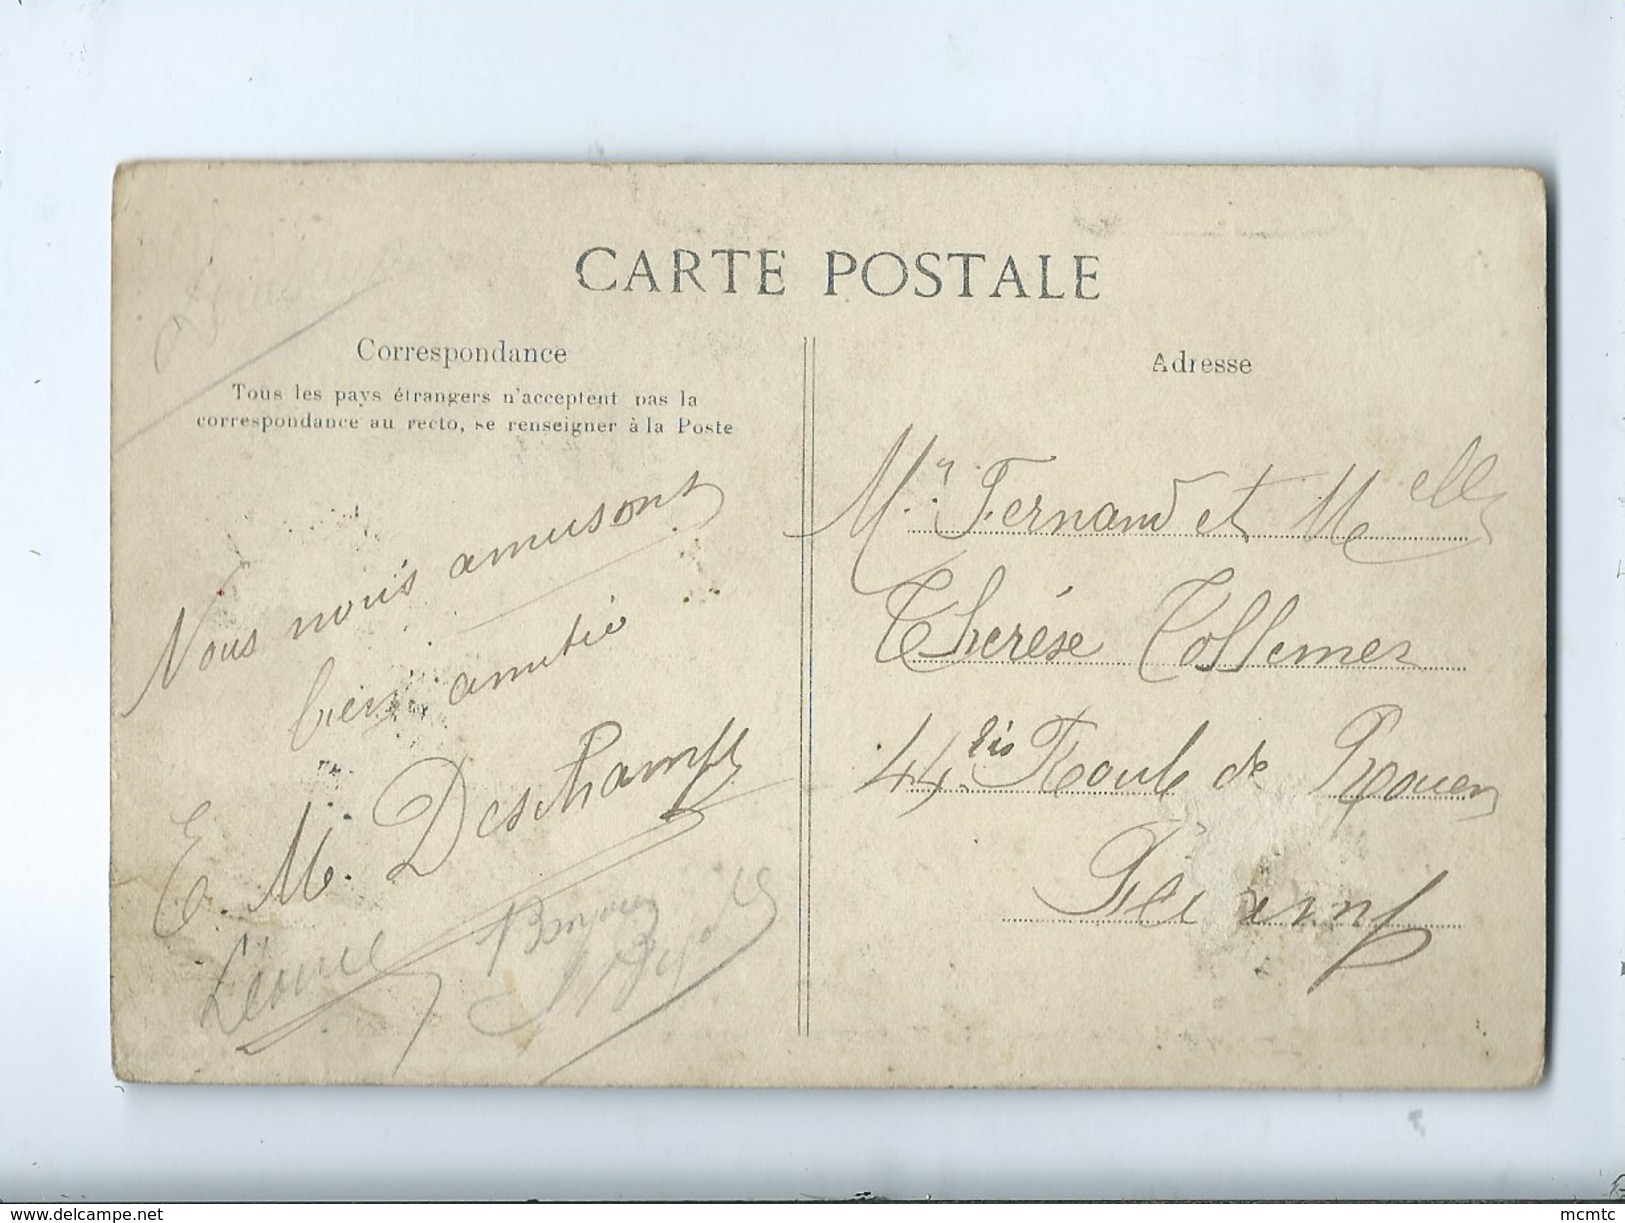 CARTE POSTALE
Correspondance
Tous les pays étrangers n'acceptent pas la
correspondance au recto, se renseigner à la Poste
Nous nous amusons
bien amitié
E. M. Deschamps
Léonie Bonjour
Adresse
Mr. Fernand et Melle
Thérèse Tollemer
44 bis Route de Rouen
Fécamp
www.delcampe.net
mcmtc